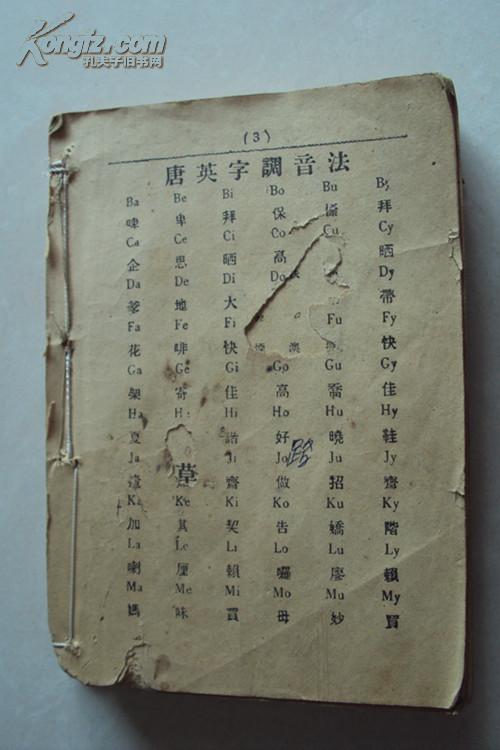 Kongfz.com
孔夫子旧书网
(3)
唐英字調音法
Ba Be Bi Bo Bu By
卑 拜 保 拜
Ca Ce Ci Co Cu Cy
企 思 晒 高 晒
Da De Di Do Dy
爹 地 大 帶
Fa Fe Fi Fu Fy
花 啡 快 快
Ga Ge Gi Go Gu Gy
架 寄 佳 高 喬 佳
Ha Hi Ho Hu Hy
夏 諧 好 曉 鞋
Ja Ji Jo Ju Jy
草 齋 做 招 齋
Ke Ki Ko Ku Ky
加 其 契 告 嬌 階
La Le Li Lo Lu Ly
喇 厘 賴 囉 廖 賴
Ma Me Mi Mo Mu My
媽 味 買 母 妙 買